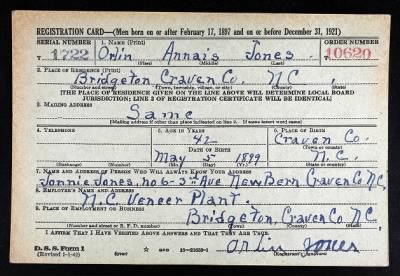 REGISTRATION CARD—(Men born on or after February 17, 1897 and on or before December 31, 1921)
SERIAL NUMBER 1. NAME (Print) ORDER NUMBER
1722 Orlin Annais Jones 10620
(First) (Middle) (Last)
2. PLACE OF RESIDENCE (Print)
Bridgeton Craven Co. N.C.
(Number and street) (Town, township, village, or city) (County) (State)
[THE PLACE OF RESIDENCE GIVEN ON THE LINE ABOVE WILL DETERMINE LOCAL BOARD
JURISDICTION; LINE 2 OF REGISTRATION CERTIFICATE WILL BE IDENTICAL]
3. MAILING ADDRESS
Same
[Mailing address if other than place indicated on line 2. If same insert word same]
4. TELEPHONE 5. AGE IN YEARS 6. PLACE OF BIRTH
42 Craven Co.
DATE OF BIRTH (Town or county)
May 5 1899 N.C.
(Exchange) (Number) (Mo.) (Day) (Yr.) (State or country)
7. NAME AND ADDRESS OF PERSON WHO WILL ALWAYS KNOW YOUR ADDRESS
Jonnie Jones, no 6-3rd Ave New Bern Craven Co N.C.
8. EMPLOYER'S NAME AND ADDRESS
N.C. Veneer Plant.
9. PLACE OF EMPLOYMENT OR BUSINESS
Bridgeton, Craven Co N.C.
(Number and street or R. F. D. number) (Town) (County) (State)
I AFFIRM THAT I HAVE VERIFIED ABOVE ANSWERS AND THAT THEY ARE TRUE.
D. S. S. Form 1
(Revised 1-1-42) (over) Orlin Jones